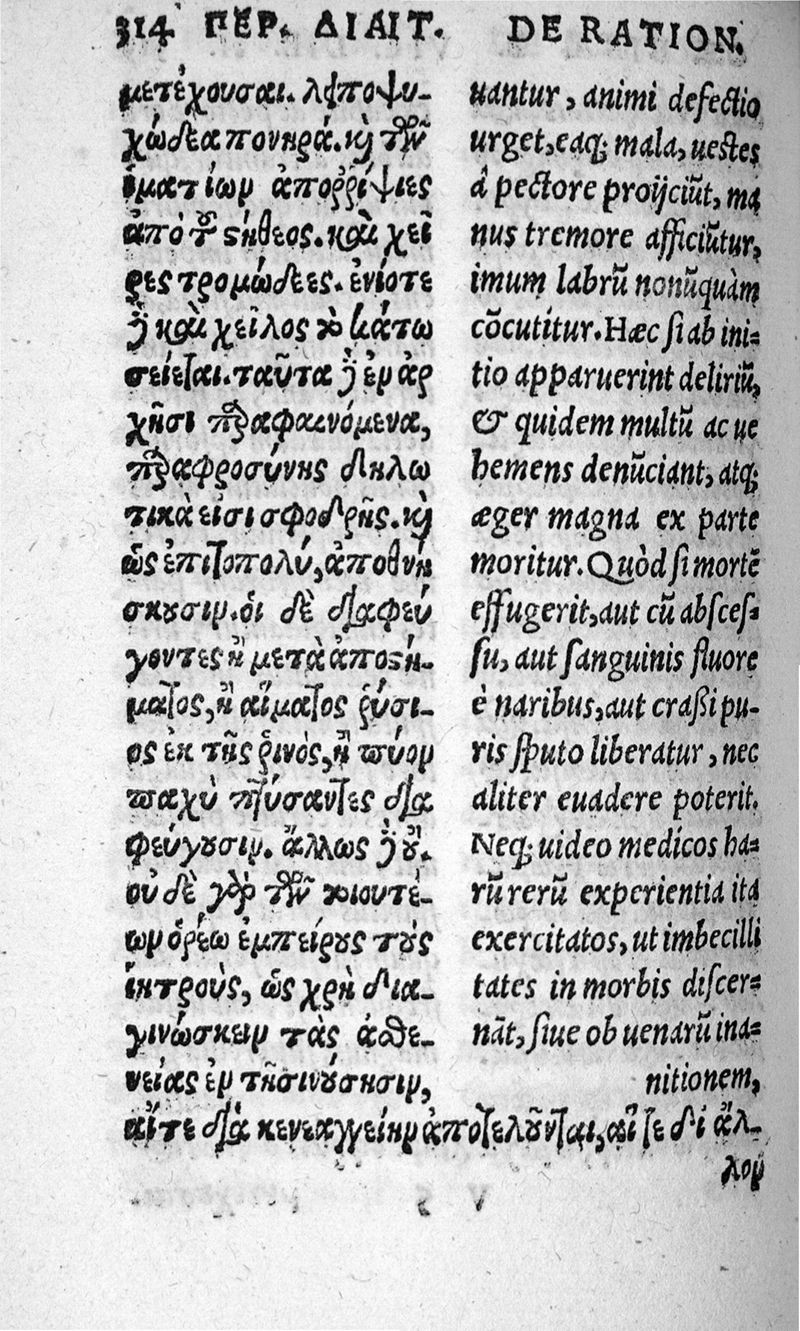 314 ΠΕΡ. ΔΙΑΙΤ.
μετέχουσαι. λιποψυ-
χώδεα πονηρά. καὶ τῶν
ἱματίων ἀποῤῥίψιες
ἀπὸ τοῦ στήθεος. καὶ χεῖ
ρες τρομώδεες. ἐνίοτε
δὲ καὶ χεῖλος τὸ κάτω
σείεται. ταῦτα δὲ ἐν ἀρ
χῆσι παραφαινόμενα,
παραφροσύνης δηλω
τικὰ εἰσι σφοδρῆς. καὶ
ὡς ἐπιτοπολύ, ἀποθνή
σκουσιν. οἱ δὲ διαφεύ
γοντες ἢ μετὰ ἀποστή-
ματος, ἢ αἵματος ῥύσι-
ος ἐκ τῆς ῥινὸς, ἢ πύον
παχὺ πτύσαντες δια
φεύγουσιν. ἄλλως δὲ οὔ.
οὐ δὲ γὰρ τῶν τοιουτέ-
ων ὁρέω ἐμπείρους τοὺς
ἰητροὺς, ὡς χρὴ δια-
γινώσκειν τὰς ἀσθε-
νείας ἐν τῇσι νούσησιν,
αἵτε διὰ κενεαγγείην ἀποτελοῦνται, αἵ τε δι ἄλ-
λον
DE RATION.
uantur, animi defectio
urget, eaq; mala, uestes
à pectore proijciūt, ma
nus tremore afficiūtur,
imum labrū nonūquàm
cōcutitur. Hæc si ab ini-
tio apparuerint deliriū,
& quidem multū ac ue
hemens denūciant, atq;
æger magna ex parte
moritur. Quòd si mortē
effugerit, aut cū absces-
su, aut sanguinis fluore
è naribus, aut craßi pu-
ris sputo liberatur, nec
aliter euadere poterit.
Neq; uideo medicos ha-
rū rerū experientia ita
exercitatos, ut imbecilli
tates in morbis discer-
nāt, siue ob uenarū ina-
nitionem,